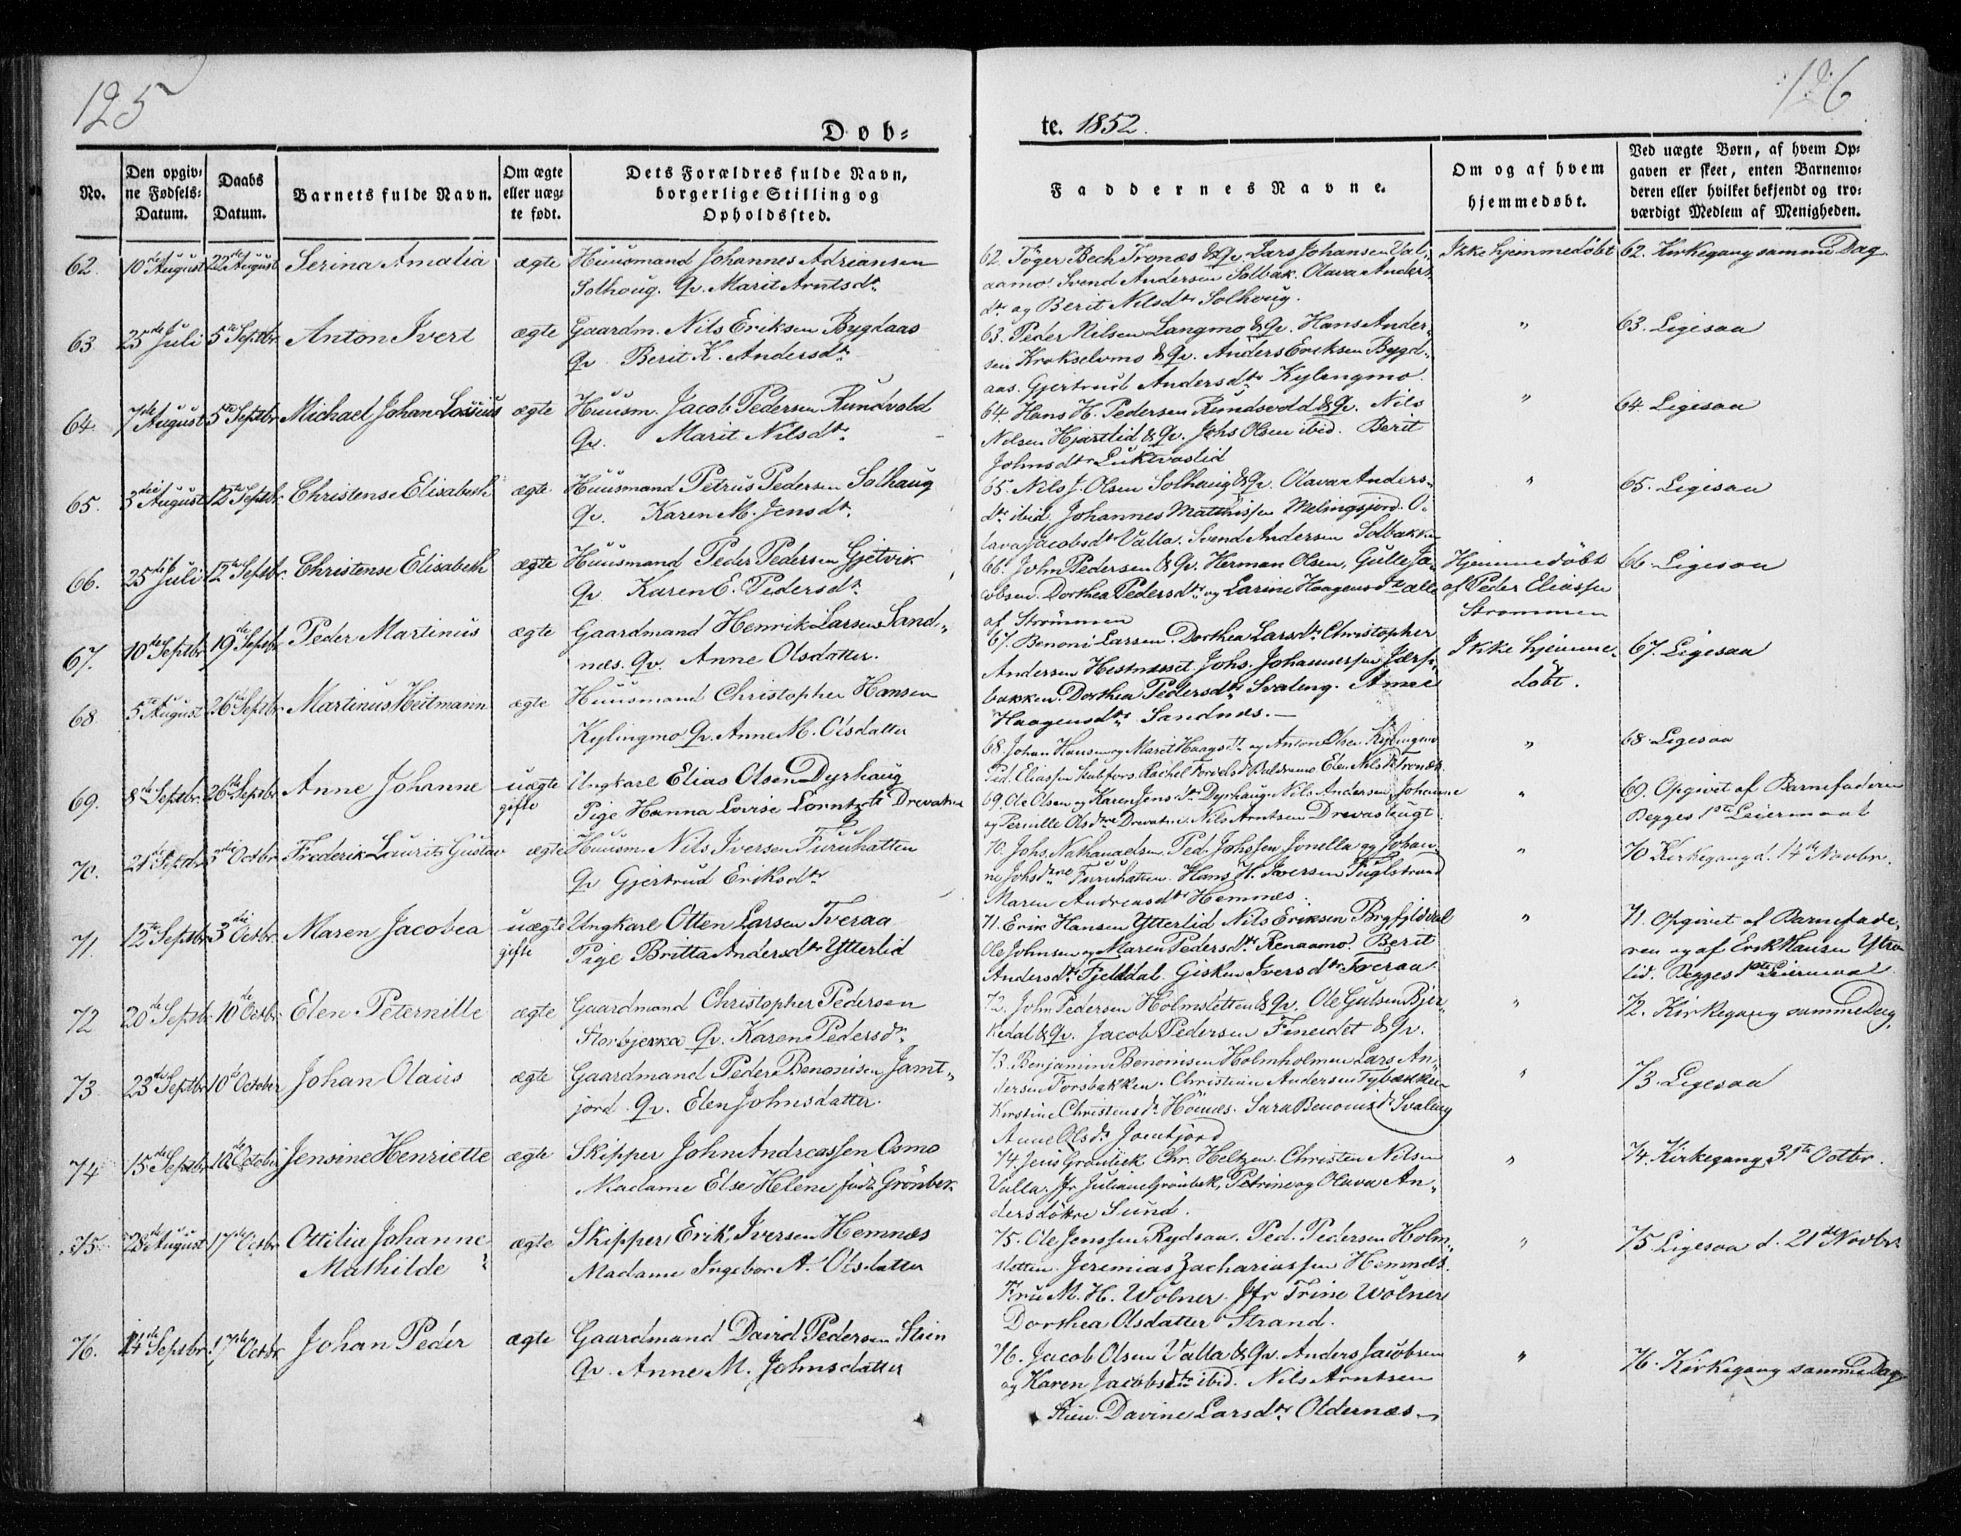 125
126
Døb=
te. 1852.
No.
Den opgiv=
ne Fødsels=
Datum.
Daabs
Datum.
Barnets fulde Navn.
Om ægte
eller uæg=
te født.
Dets Forældres fulde Navn,
borgerlige Stilling og
Opholdssted.
Faddernes Navne.
Om og af hvem
hjemmedøbt.
Ved uægte Børn, af hvem Op=
gaven er skeet, enten Barnemo=
deren eller hvilket bekjendt og tro=
værdigt Medlem af Menigheden.
62. 10de August 22de August Serina Amalia ægte Huusmand Johannes Adriansen
Solhoug. Qv. Marit Arntsdtr
62. Töger Bech Tronæs & Qv. Lars Johansen Val-
aamo. Svend Andersen Solbak. Olava Anders
dtr og Berit Nilsdtr Solhoug.
Ikke hjemmedøbt
62. Kirkegang samme Dag
63. 25de Juli 5te Septbr Anton Ivert ægte Gaardm. Nils Eriksen Bygdaas
Qv. Berit K. Andersdtr
63. Peder Nilsen Langmo & Qv. Hans Ander-
sen Krokselvmo & Qv. Anders Eriksen Bygd-
aas. Gjertrud Andersdtr Kylingmo.
"
63. Ligesaa
64. 7de August 5te Septbr Michael Johan Lossius ægte Huusm. Jacob Pedersen Rundvold
Qv. Marit Nilsdtr
64. Hans H. Pedersen Rundsvold & Qv. Nils
Nilsen Hjartlid & Qv. Johs Olsen ibid. Berit
Johnsdtr Luktvaslid
"
64. Ligesaa
65. 3die August 12te Septbr. Christense Elisabeth ægte Huusmand Petrus Pedersen Solhaug
Qv. Karen M. Jensdtr
65. Nils J. Olsen Solhaug & Qv. Olava Anders-
dtr ibid. Johannes Matthissen Mælingsjord. O-
lava Jacobsdtr Valla. Svend Andersen Solbakken
"
65. Ligesaa
66. 25de Juli 12te Septbr. Christense Elisabeth ægte Huusmand Peder Pedersen Gjetvik
Qv Karen E. Pedersdtr
66. John Pedersen & Qv. Herman Olsen, Gulle Ja-
cobsen. Dorthea Pedersdtr og Larine Haagensdtr alle
af Strömmen
Hjemmedöbt
af Peder Eliassen
Strømmen
66. Ligesaa
67. 10de Septbr 19de Septbr Peder Martinus ægte Gaardmand Henrik Larsen Sand-
næs. Qv. Anne Olsdatter.
67. Benoni Larsen. Dorthea Larsdtr. Christopher
Andersen Hestnæsset. Johs. Johannessen Jærp-
bakken. Dorthea Pedersdtr Svaleng. Anne
Haagensdtr Sandnæs.
Ikke hjemme-
døbt.
67. Ligesaa
68. 5te August 26de Septbr Martinus Heitmann ægte Huusmand Christopher Hansen
Kylingmo Qv. Anne M. Olsdatter
68. Johan Hansen og Maret Haagsdtr og Anton Olsen Kylingmo
Ped. Eliassen Kulfors. Rachel Baldramo Elen Nilsdtr Tronæs.
"
68 Ligesaa
69. 8de Septbr. 26de Septbr. Anne Johanne uægte
gifte Ungkarl Elias Olsen Dyrhaug
Pige Hanna Lovise Lorntzdtr Drevatne
69. Ole Olsen og Karen Jensdtr Dyrhaug. Nils Andersen, Johanne
og Pernille Olsdtre Drevatne. Nils Arntsen Drevasleugt
"
69. Opgivet af Barnefaderen
Begges 1ste Leiermaal
70. 21de Septbr 3die Octbr. Frederik Laurits Gustav ægte Huusm. Nils Iversen Furuhatten
Qv Gjertrud Eriksdtr
70. Johs. Nathanaelsen. Ped. Johssen Jonella og Johan-
ne Johsdtre Furuhatten. Hans H. Iversen Fuglstrand
Maren Andreasdtr Hemnes.
"
70 Kirkegang d. 14de Novbr.
71. 12te Septbr 3die Octbr. Maren Jacobea uægte
gifte Ungkarl Otten Larsen Tveraa
Pige Britta Andersdtr Ytterlid
71. Erik Hansen Ytterlid Nils Eriksen Brygfjeldal
Ole Johnsen og Maren Pedersdtr Renaamo. Berit
Andersdtr Fjelldal. Gisken Iversdtr Tveraa
"
71. Opgivet af Barnefade-
ren og af Erik Hansen Ytra
lid. Begges 1ste Leiermaal
72 20de Septbr. 10de Octbr. Elen Peternille ægte Gaardmand Christopher Pedersen
Storbjerka Qv. Karen Pedersdtr
72. John Pedersen Holmsletten & Qv. Ole Gulsen Bjer-
kedal & Qv. Jacob Pedersen Fineidet & Qv.
"
72. Kirkegang samme Dag.
73 23de Septbr 10de October Johan Olaus ægte Gaardmand Peder Benonisen Jamt-
jord. Qv. Elen Johnsdatter.
73. Benjamin Benonisen Holmholmen Lars An-
dersen Forsbakken. Christian Andersen Fybækken
Kirstine Christensdtr Hönæs. Sara Benonisdtr Svaleng
Anne Olsdtr Jamtjord
"
73. Ligesaa
74 15de Septbr 10de October Jensine Henriette ægte Skipper John Andreassen Osmo
Madame Else Helene födt Grönbek
74. Jens Grönbek Chr. Heltzen. Christen Nilsen
Valla. Jfr Juliane Grönbek, Petrine og Olava An-
dersdöttre Sund.
"
74. Kirkegang 31te Octbr.
75. 28de August 17de Octbr Ottilia Johanne
Mathilde ægte Skipper Erik Iversen Hemnæs
Madame Ingebor A. Olsdatter
75. Ole Jenssen Rydsaa. Ped. Pedersen Holm-
sletten. Jeremias Zachariassen Hemnæs.
Fru M. H. Wölner. Jfr Trine Wölner
Dorthea Olsdatter Strand.
"
75 Ligesaa d. 21de Novbr
76. 14de Septbr. 17de Octbr. Johan Peder ægte Gaardmand David Pedersen Stien
Qv. Anne M. Johnsdatter
76. Jacob Olsen Valla & Qv. Anders Jacobsen
og Karen Jacobsdtr ibid. Nils Arntsen
Stien. Davine Larsdtr Oldernæs
"
76. Kirkegang samme Dag